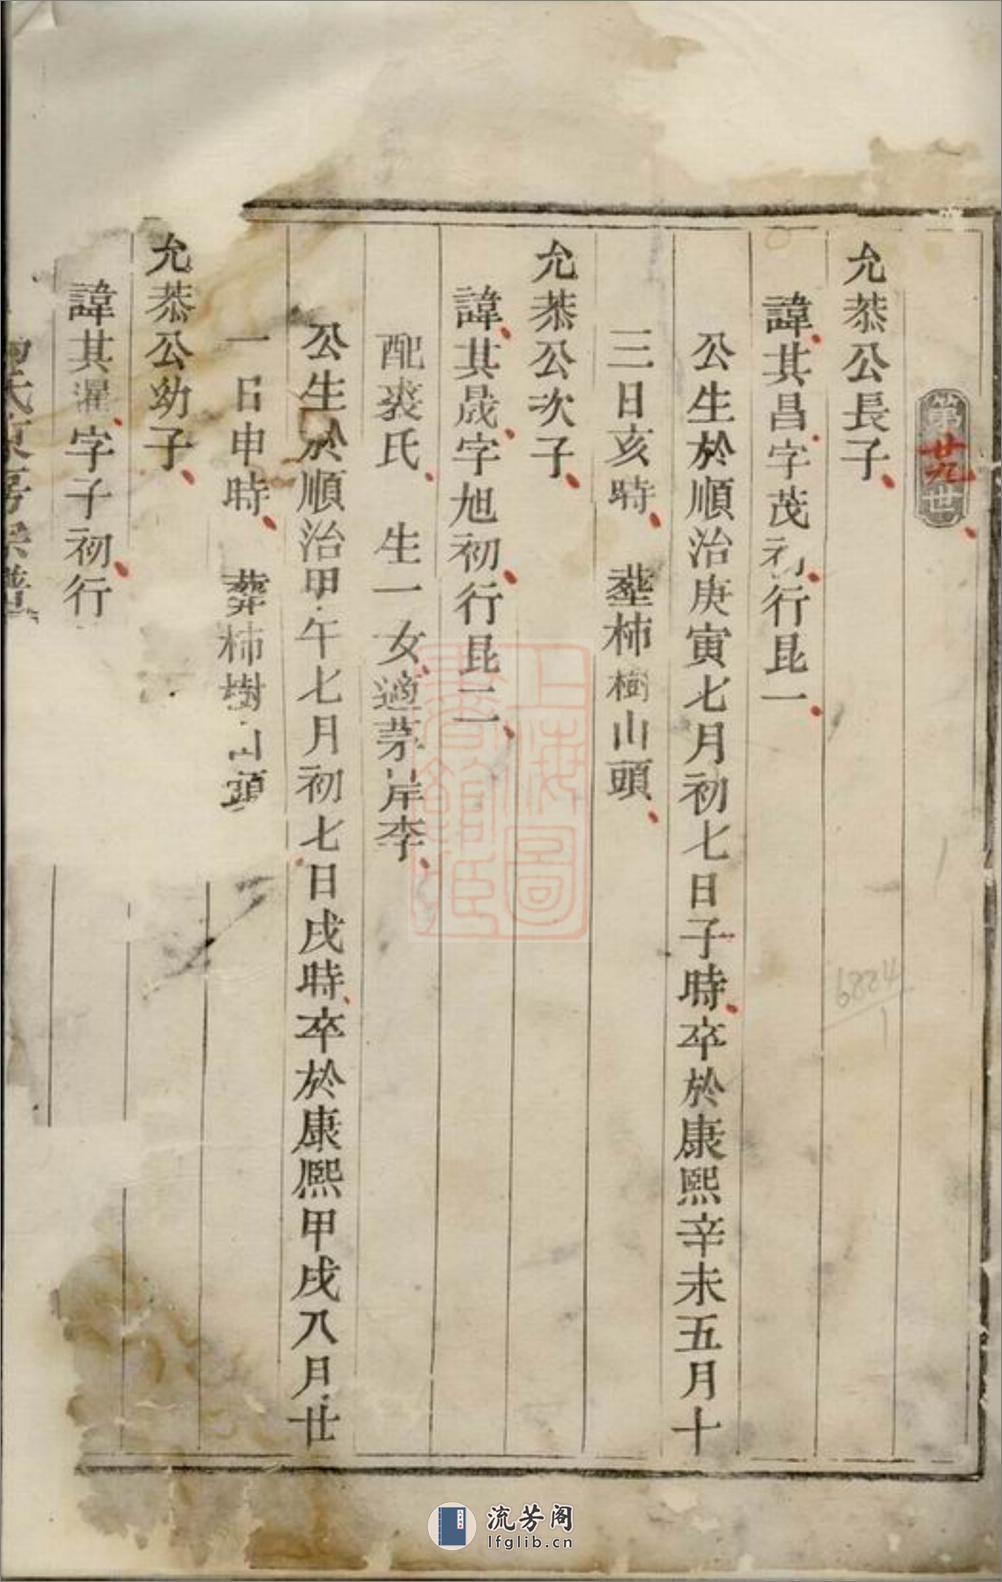 第廿九世
允恭公長子
諱其昌字茂初行昆一
公生於順治庚寅七月初七日子時卒於康熙辛未五月十
三日亥時 塟柿樹山頭
允恭公次子
諱其晟字旭初行昆二
配裘氏 生一女適茅岸李
公生於順治甲午七月初七日戌時卒於康熙甲戌八月廿
一日申時 葬柿樹山頭
允恭公幼子
諱其濯字子初行
氏東房宗譜
上海圖書館藏
6884
1
流芳阁
lfglib.cn